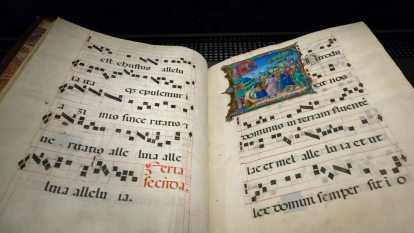 est christus allelu
epulemur i
mis since ritatis
ritatis alle luia alle
luia allelu ia.
feria
secunda.
ntrodu
it uos
dominus in terram fluente
lac et mel alle lu ia et ut
lex domini semper sit i o